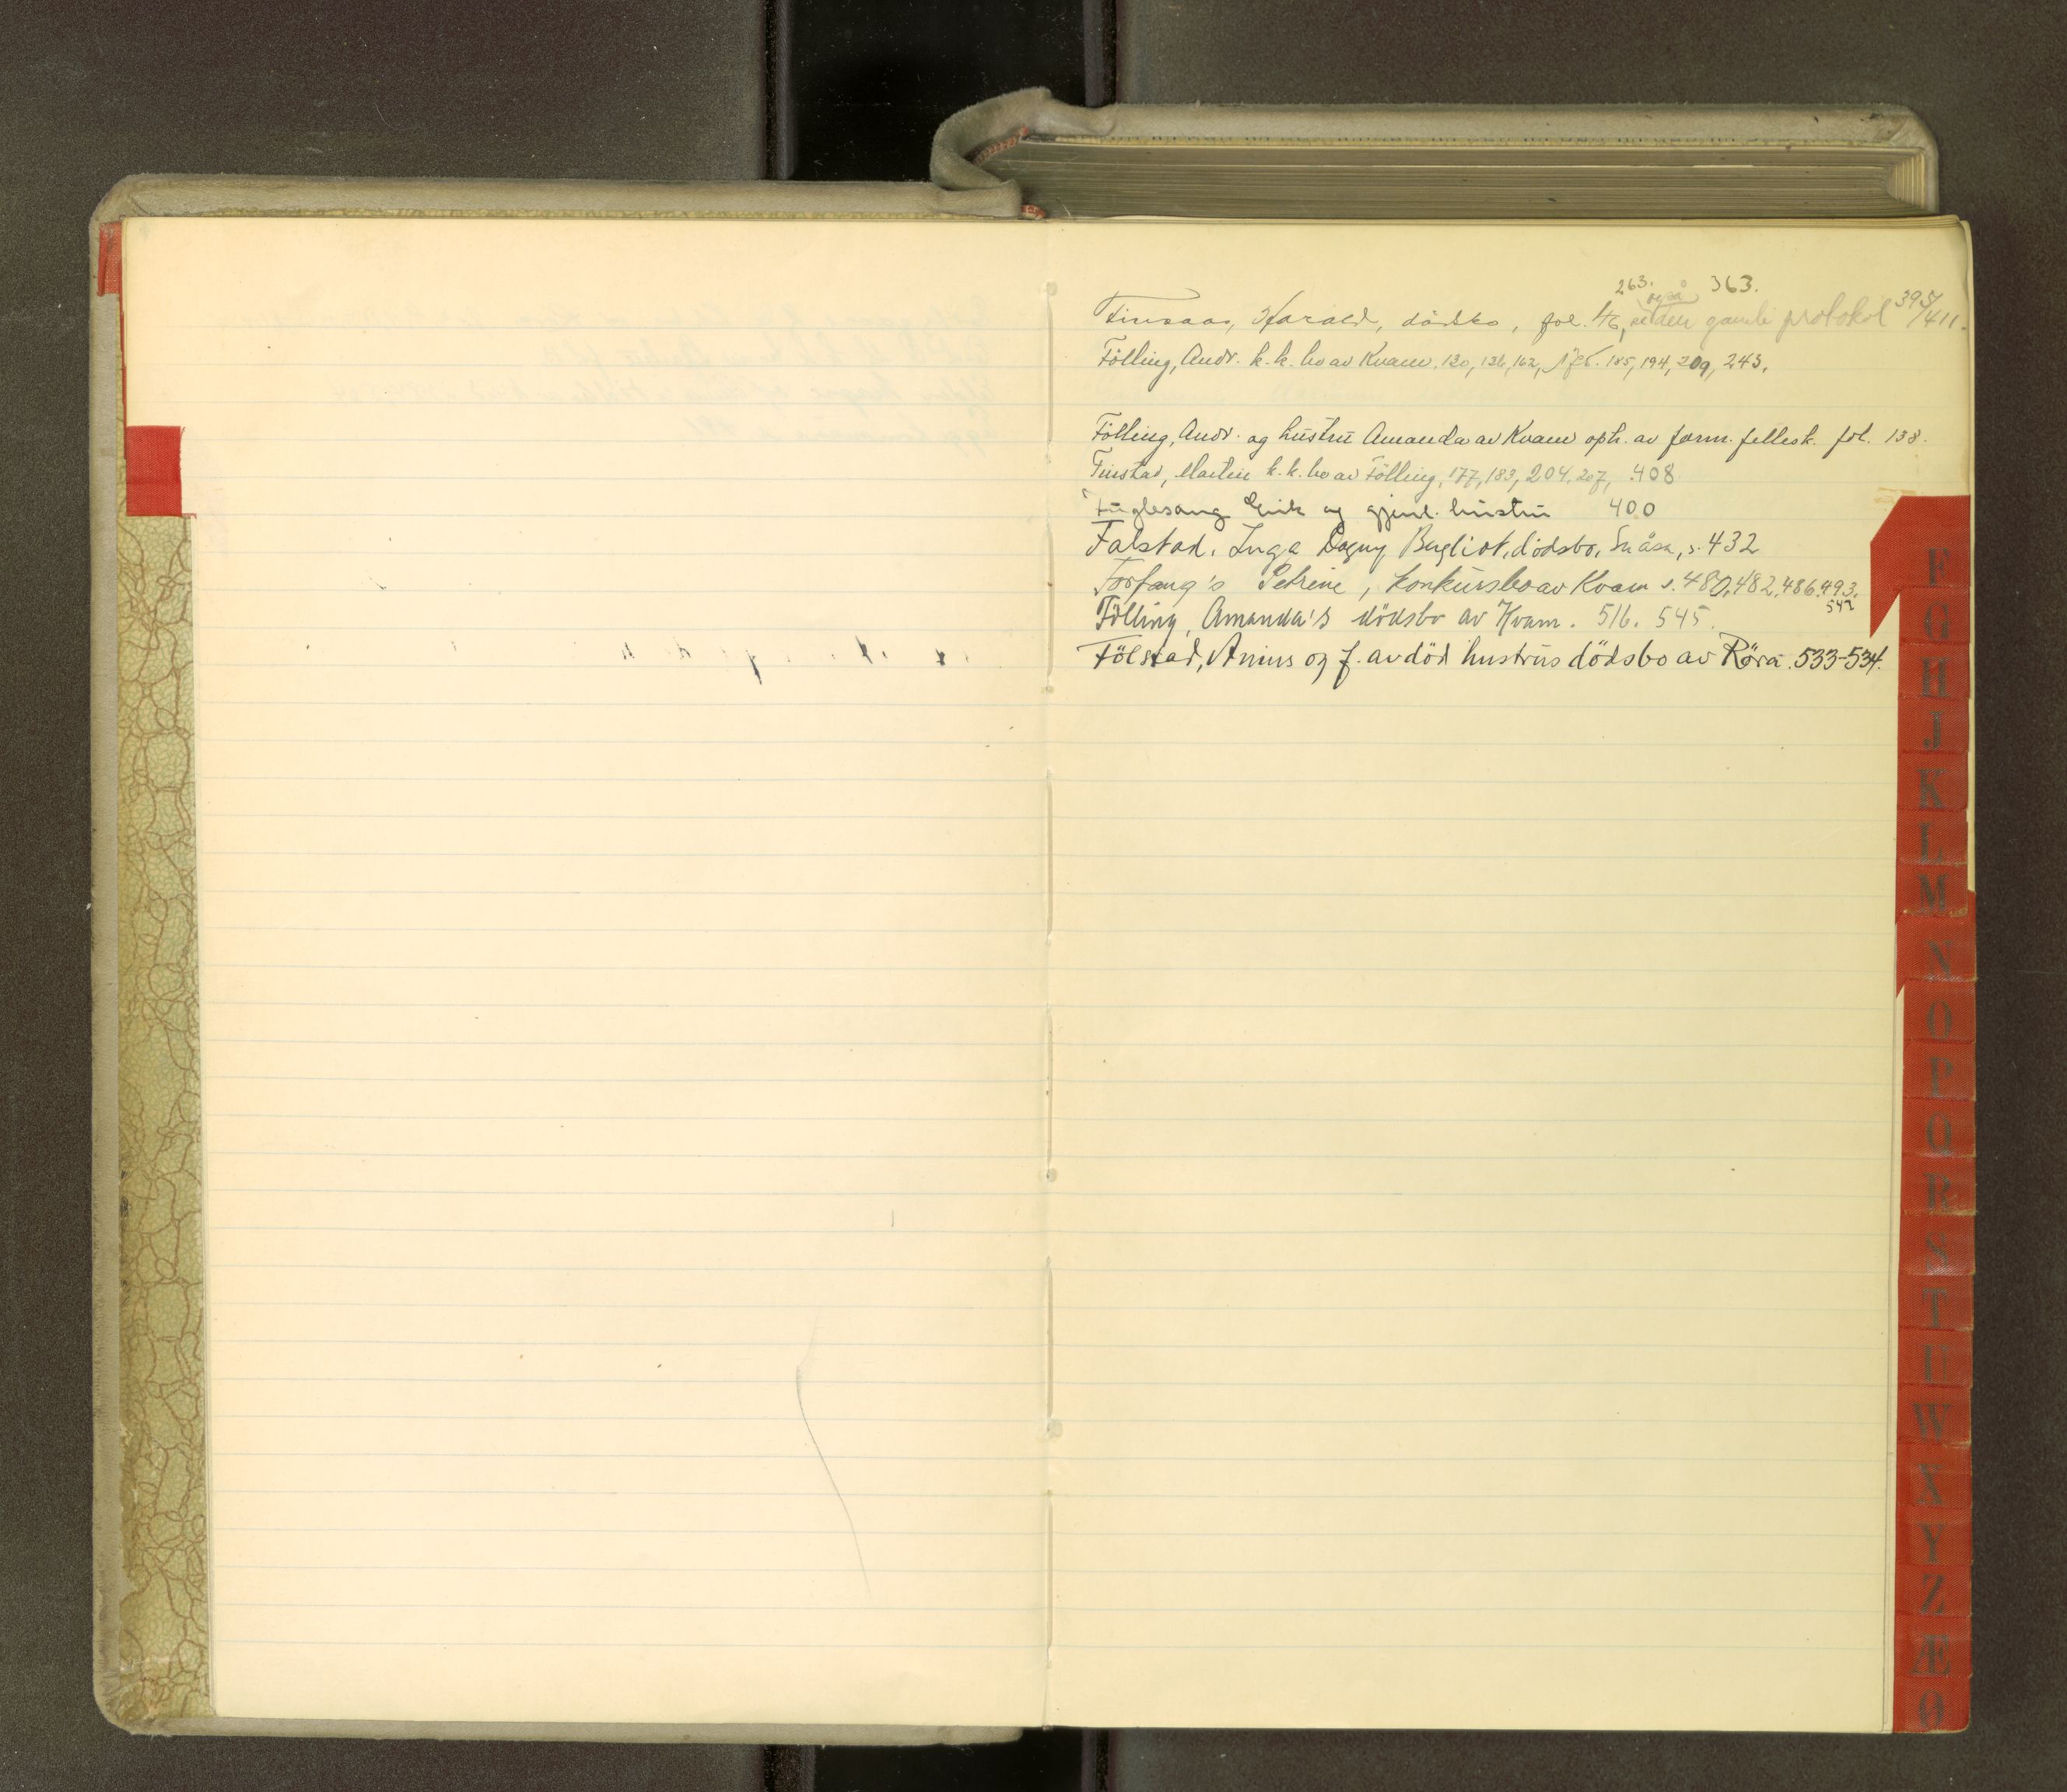 263. også 363.
Finsaas, Harald, dødsbo, fol. gamle protokol 395/411.
Fölling, Andr. k.k. bo av Kvam. 130, 136, 162, 185, 194, 209, 243.
Fölling, Andr. og hustru Amanda av Kvam oph. av form. fellesk. fol. 138.
Finstad, Martin k.k. bo av Fölling, 177, 183, 204, 207, 408
Fuglesang Erik og gjenl. hustru 400
Falstad, Inga Dagny Bergliot, dödsbo, Snåsa, s. 432
Forfang's Petrine, konkursbo av Kvam s. 480, 482, 486, 493, 542
Fölling, Amanda's dödsbo av Kvam. 516. 545.
Fölstad, Anius og f. avdöd hustrus dödsbo av Röra. 533-534.
F
G
H
J
K
L
M
N
O
P
Q
R
S
T
U
W
X
Y
Z
Æ
Ø